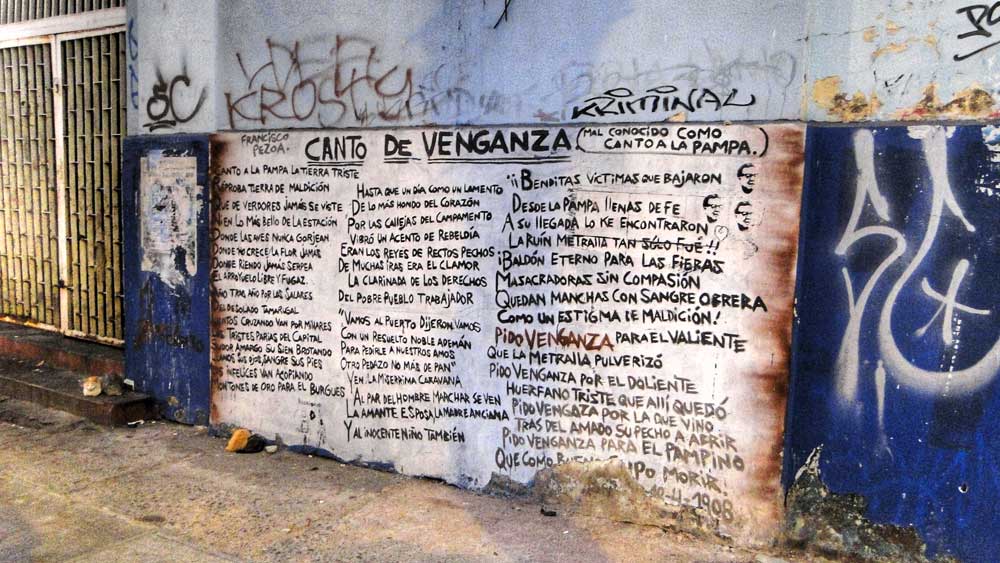 KROSTY
KRIMINAL
FRANCISCO
PEZOA.
CANTO DE VENGANZA
(MAL CONOCIDO COMO
CANTO A LA PAMPA.)
CANTO A LA PAMPA LA TIERRA TRISTE
RÉPROBA TIERRA DE MALDICIÓN
QUE DE VERDORES JAMÁS SE VISTE
NI EN LO MÁS BELLO DE LA ESTACIÓN
DONDE LAS AVES NUNCA GORJEAN
DONDE NO CRECE LA FLOR JAMÁS
DONDE RIENDO JAMÁS SERPEA
EL ARROYUELO LIBRE Y FUGAZ.
AÑO TRAS AÑO POR LOS SALARES
DEL DESOLADO TAMARUGAL
LENTOS CRUZANDO VAN POR MILLARES
LOS TRISTES PARIAS DEL CAPITAL
SUDOR AMARGO SU SIEN BROTANDO
SUS OJOS, SANGRE SUS PIES
LOS INFELICES VAN ACOPIANDO
MONTONES DE ORO PARA EL BURGUES
HASTA QUE UN DÍA COMO UN LAMENTO
DE LO MÁS HONDO DEL CORAZÓN
POR LAS CALLEJAS DEL CAMPAMENTO
VIBRÓ UN ACENTO DE REBELDÍA
ERAN LOS REYES DE RECTOS PECHOS
DE MUCHAS IRAS ERA EL CLAMOR
LA CLARINADA DE LOS DERECHOS
DEL POBRE PUEBLO TRABAJADOR
"VAMOS AL PUERTO DIJERON, VAMOS
CON UN RESUELTO NOBLE ADEMÁN
PARA PEDIRLE A NUESTROS AMOS
OTRO PEDAZO NO MÁS DE PAN"
Y EN LA MISERRIMA CARAVANA
AL PAR DEL HOMBRE MARCHAR SE VEN
LA AMANTE ESPOSA, LA MADRE ANCIANA
Y AL INOCENTE NIÑO TAMBIÉN
¡¡BENDITAS VÍCTIMAS QUE BAJARON
DESDE LA PAMPA LLENAS DE FE
A SU LLEGADA LO KE ENCONTRARON
LA RUÍN METRALLA TAN SÓLO FUÉ!!
¡BALDÓN ETERNO PARA LAS FIERAS
MASACRADORAS SIN COMPASIÓN
QUEDAN MANCHAS CON SANGRE OBRERA
COMO UN ESTIGMA DE MALDICIÓN!
PIDO VENGANZA PARA EL VALIENTE
QUE LA METRALLA PULVERIZÓ
PIDO VENGANZA POR EL DOLIENTE
HUERFANO TRISTE QUE ALLÍ QUEDÓ
PIDO VENGAZA POR LA QUE VINO
TRAS DEL AMADO SU PECHO A ABRIR
PIDO VENGANZA PARA EL PAMPINO
QUE COMO BUENO SUPO MORIR.
1908